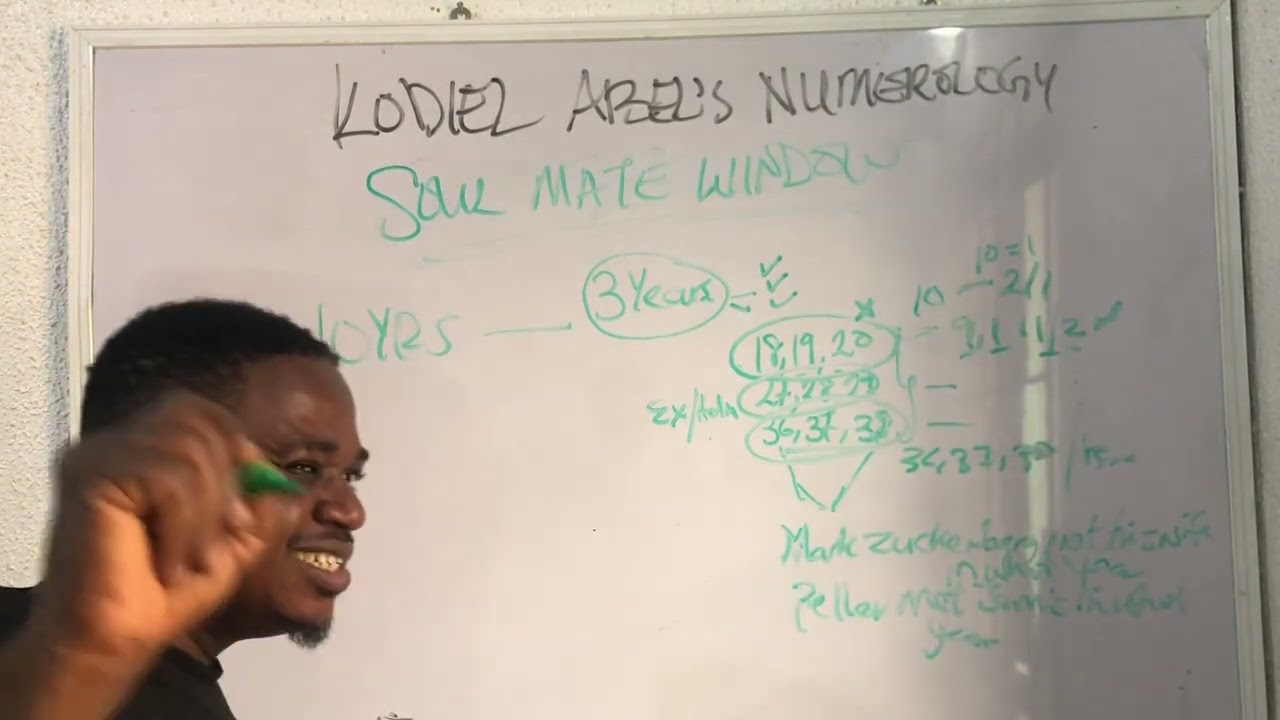 KODIEL ABEL'S NUMEROLOGY
SOUL MATE WINDOW
10YRS — 3 Years =
10 = 1
10 — 2/1
18, 19, 20 - 9, 1, 11, 2
27, 28, 29 —
36, 37, 38 —
Ex/
36, 37, 38 /
Mark Zuckerberg met his wife
in what year
Peller met Jarvis in what
year